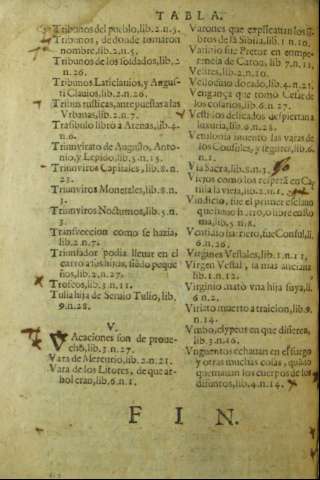 TABLA.
Tribunos del pueblo, lib. 2. n. 3.
Tribunos, de donde tomaron
nombre, lib. 2. n. 5.
Tribunos de los soldados, lib. 2
n. 26.
Tribunos Laticlauios, y Angus-
ti Clauios, lib. 2. n. 26.
Tribus rusticas, antepuestas a las
Vrbanas, lib. 2. n. 7.
Trasibulo librò a Atenas, lib. 4.
n. 6.
Triumvirato de Augusto, Anto-
nio, y Lepido, lib. 3. n. 15.
Triumviros Capitales, lib. 8. n.
23.
Triumviros Monetales, lib. 8. n.
3.
Triumviros Nocturnos, lib. 5. n.
3.
Transveccion como se hazia,
lib. 2. n. 7.
Triunfador podia lleuar en el
carro a sus hijos, siẽdo peque
ños, lib. 2. n. 27.
Trofeos, lib. 3. n. 11.
Tulia hija de Seruio Tulio, lib.
9. n. 28.
V.
VAcaciones son de proue-
cho, lib. 3. n. 27.
Vara de Mercurio, lib. 2. n. 21.
Vara de los Litores, de que ar-
bol eran, lib. 6. n. 1.
Varones que explicauan los li-
bros de la Sibila, lib. 1. n. 10.
Vatinio fue Pretor en compe-
tencia de Caton, lib. 7. n. 11,
Velites, lib. 2. n. 10.
dorado, lib. 4. n. 21.
Vengança que tomò Cesar de
los cosarios, lib. 6. n. 27.
Vestidos delicados despiertan a
luxuria, lib. 6. n. 28.
las varas de
los Consules, y segures, lib. 6.
n. 1.
Via Sacra, lib. 8. n.
Viejos como los respetã en
lib. 2. n. 1.
Vindicio, fue el primer esclauo
que hizo libre en Ro
ma, lib. 5. n. 8.
Ventidio fue Consul, li.
6. n. 26.
Virgines Vestales, lib. 1. n. 11.
Virgen Vestal, la mas anciana
lib. 1. n. 12.
Virginio matò vna hija suya, li.
6. n. 2.
Viriato muerto a traicion, lib. 9.
n. 14.
clypeus en que difiere,
lib. 3. n. 16.
Vnguentos echauan en el fuego
y otras muchas cosas, quãdo
quemauan los cuerpos de los
difuntos, lib. 4. n. 14.
FIN.